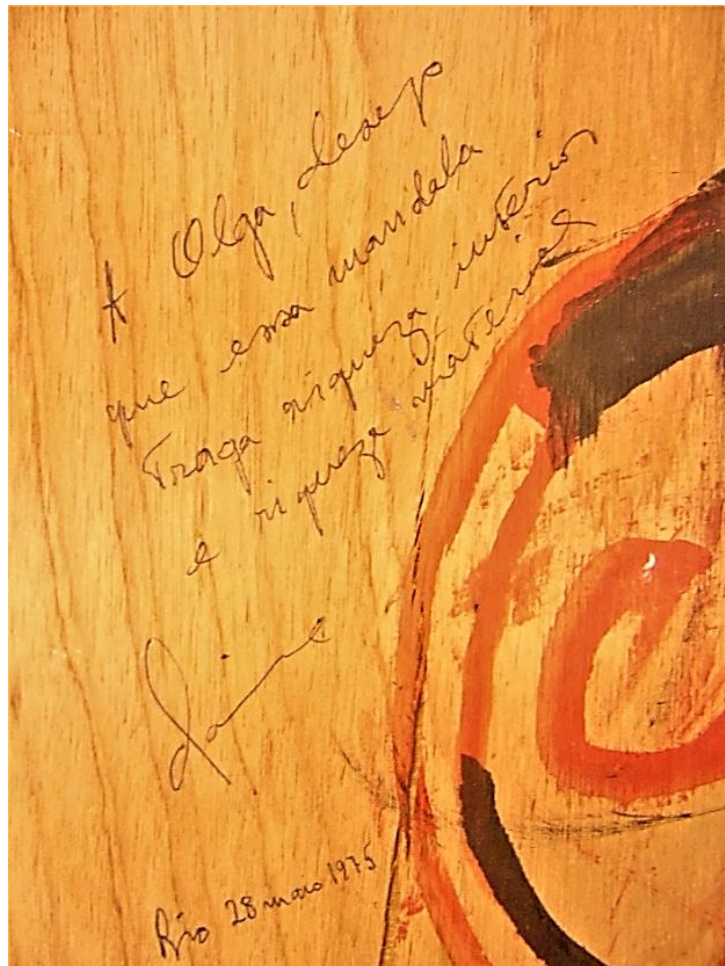 A Olga, desejo
que essa mandala
Traga riqueza interior
e riqueza material
Rio 28 maio 1975